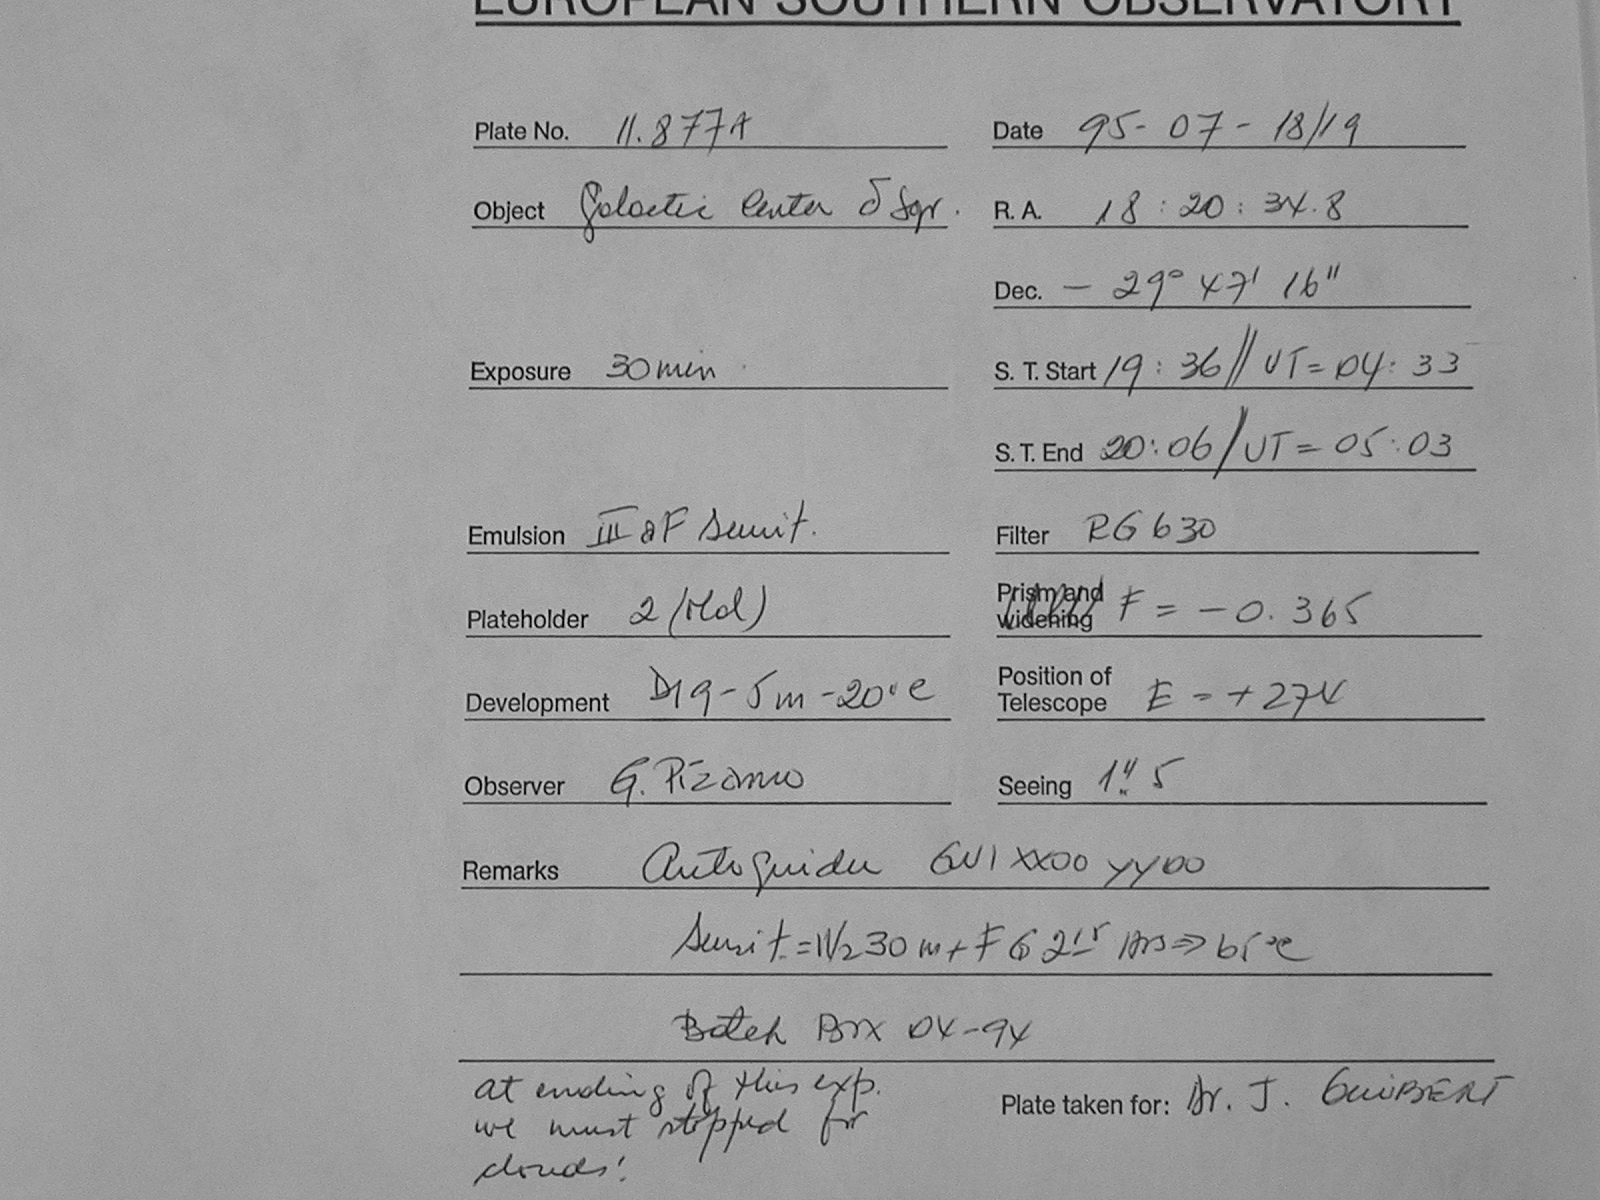 EUROPEAN SOUTHERN OBSERVATORY
Plate No. 11.877A
Date 95-07-18/19
Object Galactic Center δ Sgr.
R. A. 18:20:34.8
Dec. - 29° 47' 16"
Exposure 30 min
S. T. Start 19:36 // UT = 04:33
S. T. End 20:06 / UT = 05:03
Emulsion III aF Sensit.
Filter RG 630
Plateholder 2 (old)
Prism and widening F = -0.365
Development D19 - 5m - 20°C
Position of Telescope E = +274
Observer G. Pizarro
Seeing 1".5
Remarks Autoguider GU1 XX00 YY00
Sensit. = N2 30 m + FG 2 hrs => 65°C
Batch Box 04-94
at ending of this exp.
we must stopped for
clouds!
Plate taken for: Dr. J. GUIBERT